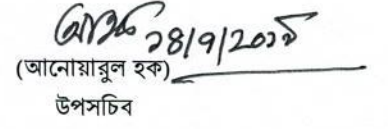 ১৪/৭/২০১৯
(আনোয়ারুল হক)
উপসচিব